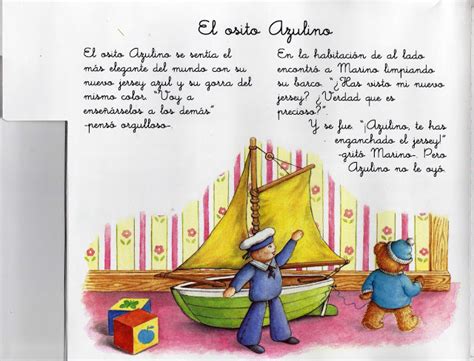 El osito Azulino
El osito Azulino se sentía el
más elegante del mundo con su
nuevo jersey azul y su gorra del
mismo color. "Voy a
enseñárselos a los demás"
-pensó orgulloso-.
En la habitación de al lado
encontró a Marino limpiando
su barco. "¿Has visto mi nuevo
jersey? ¿Verdad que es
precioso?".
Y se fue. "¡Azulino, te has
enganchado el jersey!"
-gritó Marino-. Pero
Azulino no le oyó.